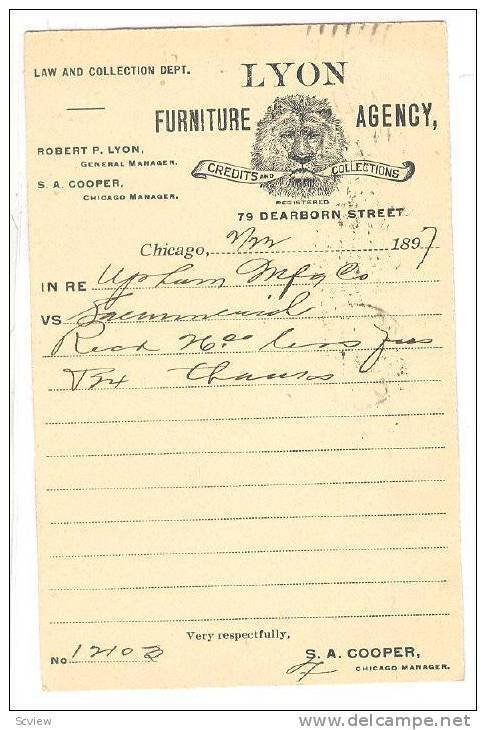 LAW AND COLLECTION DEPT.
LYON
FURNITURE AGENCY,
ROBERT P. LYON,
GENERAL MANAGER.
S. A. COOPER,
CHICAGO MANAGER.
CREDITS AND COLLECTIONS
REGISTERED
79 DEARBORN STREET.
Chicago, 2/22 1897
IN RE Upham Mfg Co
VS
Recd 26.00 less fees
Thanks
Very respectfully,
No. 12103
S. A. COOPER,
CHICAGO MANAGER.
Scview
www.delcampe.net